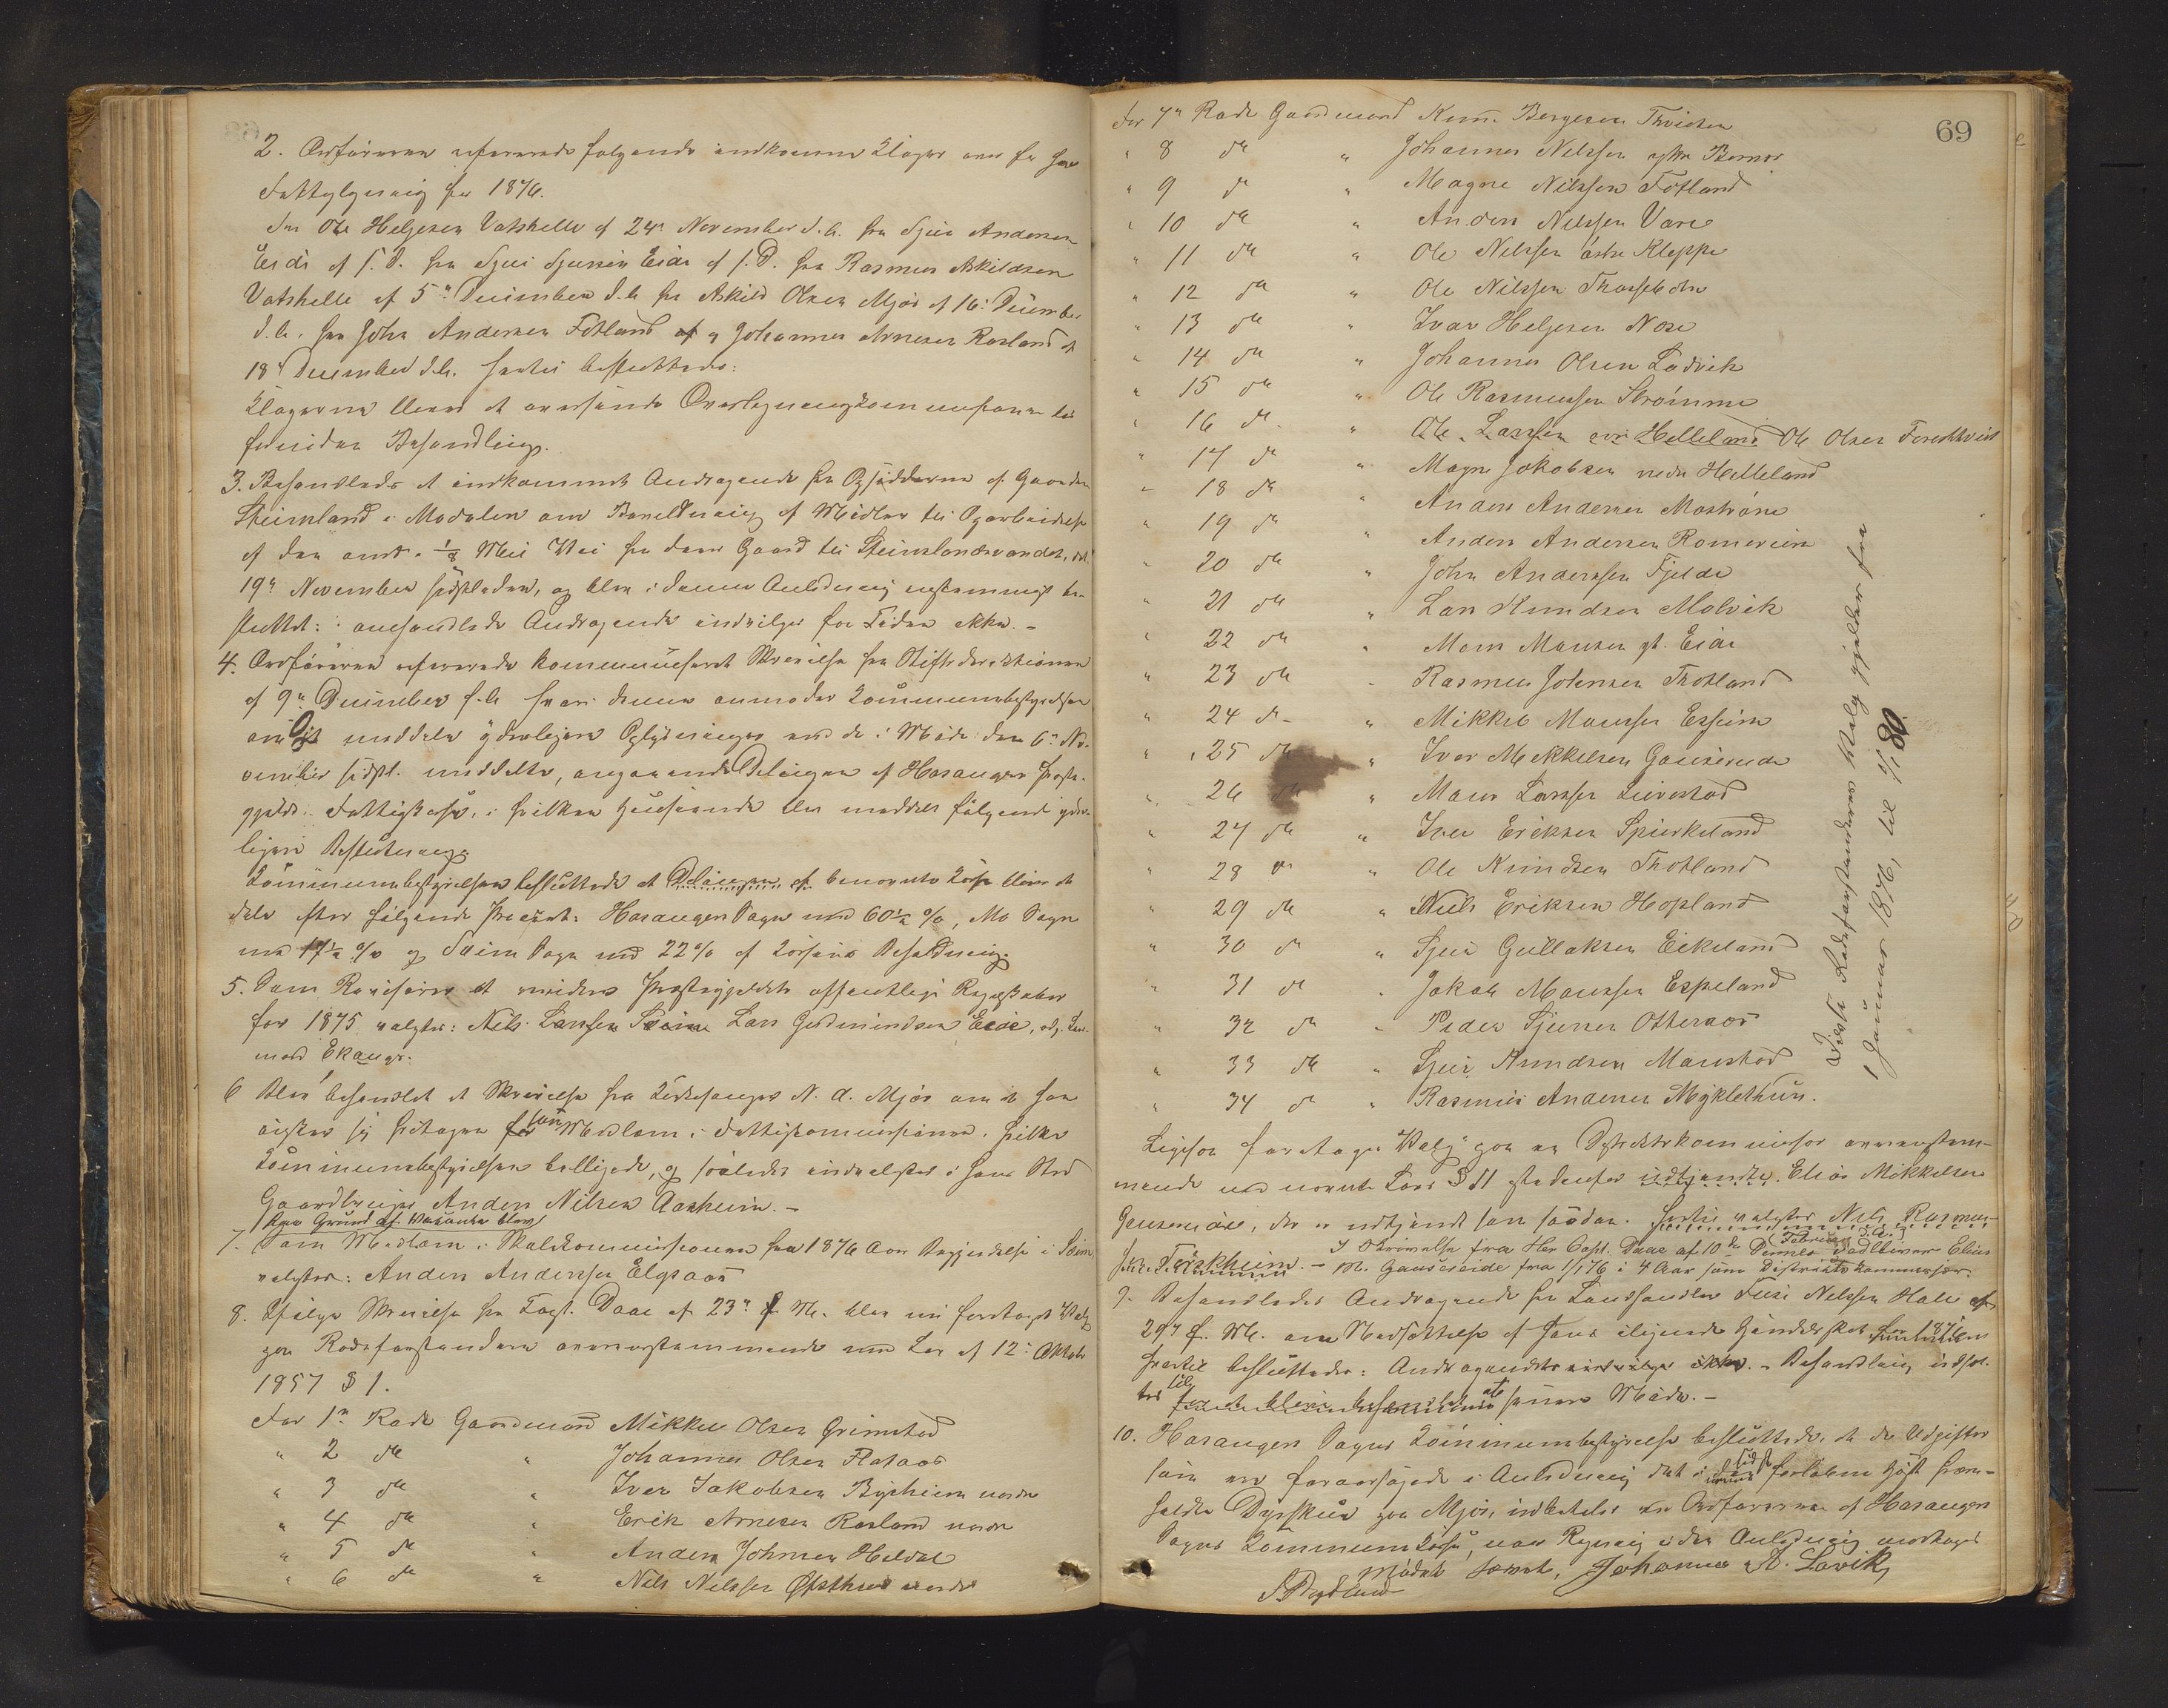 2. Ordføreren refererede følgende indkomne Klager over for høi
Fattigligning for 1876.
Fra Ole Helgesen Vatshelle af 24de November d.A. fra Sjur Andersen
Eide af s.D. fra Sjur Sjursen Eide af s.D. fra Rasmus Askildsen
Vatshelle af 5te December d.A. fra Askild Olsen Mjøs af 16. December
d.A. fra John Andersen Fotland og Johannes Arnesen Rosland af
18de December d.A. hvortil besluttedes:
Klagerne bliver at oversende Overligningskommissionen til
Behandling.
3. Behandledes et indkommet Andragende fra Opsidderne af Gaarden
Steinsland i Modalen om Bevilgning af Midler til Oparbeidelse
af den omtr. 1/8 Miil Vei fra denne Gaard til Steinslandsvandet, dat.
19de November sidstleden, og blev i denne Anledning eenstemmigt be-
sluttet: omhandlede Andragende indvilges for Tiden ikke. -
4. Ordføreren refererede Skrivelse fra Stiftsdirektionen
af 9de December d.A. hvori denne anmoder Kommunebestyrelsen
om at meddele yderligere Oplysninger end de i Møde den 6te No-
vember sidstl. meddelte, angaaende Delingen af Hosanger Præste-
gjelds Fattigkasse, i hvilken Henseende blev meddelt følgende yder-
ligere Beslutning:
Kommunebestyrelsen besluttede at Delingen af benævnte Kasse bliver at
dele efter følgende Procent: Hosanger Sogn med 60½ %, Mo Sogn
med 17½ % og Seim Sogn med 22 % af Kassens Beholdning.
5. Som Revisorer at revidere Præstegjeldets offentlige Regnskaber
for 1875 valgtes: Nils Larssen Seim Lars Gudmundsen Eide, og Lens-
mand Ekanger.
6 Blev behandlet et Skrivelse fra Kirkesanger N. A. Mjøs om at han
ønsker sig fritagen som Medlem i Fattigkommissionen, hvilket
Kommunebestyrelsen billigede, og saaledes indvalgtes i hans Sted
Gaardbruger Anders Nilsen Aasheim. -
paa Grund af Vakance blev
7. Som Medlem i Skolekommissionen fra 1876 Aars Begyndelse i Seim
valgtes: Anders Anderssen Elgsaas
8. Ifølge Skrivelse fra Fogd. Daae af 23de f. M. blev nu foretaget Valg
paa Rodeforstandere overensstemmende med Lov af 12. Oktober
1857 § 1.
For 1ste Rode Gaardmand Mikkel Olsen Grimstad
" 2 do " Johannes Olsen Flataas
" 3 do " Iver Jakobsen Bysheim nordre
" 4 do " Erik Arnesen Rosland nedre
" 5 do " Anders Johnsen Heldal
" 6 do " Nils Nilssen nordre
69
For 7de Rode Gaardmand Knu Børgesen Tveiten
" 8 do " Johannes Nilssen Bernes
" 9 do " Magne Nilssen Fotland
" 10 do " Anders Nilssen Vare
" 11 do " Ole Nilssen østre Kleppe
" 12 do " Ole Nilssen
" 13 do " Ivar Helgesen Nose
" 14 do " Johannes Olsen Ladvik
" 15 do " Ole Rasmussen Strømme
" 16 do " Ole Larssen øvre Helleland Ole Olsen
" 17 do " Magne Jakobsen nedre Helleland
" 18 do " Anders Andersen Mostrøm
" 19 do " Anders Andersen Romereim
" 20 do " John Anderssen Fjelde
" 21 do " Lars Knudsen Molvik
" 22 do " Mons Monsen Eide
" 23 do " Rasmus Johnsen Thotland
" 24 do " Mikkel Monsen Esseim
" 25 do " Iver Mekkelsen Gauseride
" 26 do " Mons Larssen Leirestad
" 27 do " Iver Eriksen Speirkeland
" 28 do " Ole Knudsen Thotland
" 29 do " Niels Eriksen Hopland
" 30 do " Sjur Gullaksen Eikeland
" 31 do " Jakob Monssen Espeland
" 32 do " Peder Sjursen Otteraas
" 33 do " Sjur Knudsen Manstad
" 34 do " Rasmus Andersen Myklethun.
Disse Rodeforstanderes Valg gjælder fra
1 Januar 1876, til 1/1 80.
Ligesaa foretoges Valg paa en Distriktskommissær overensstem-
mende med nævnte Lovs § 11 istedenfor udtjente Elias Mikkelsen
Gauseride, der er udtjendt som saadan. Hertil valgtes Nils Rasmus-
sen Tøskheim. - I Skrivelse fra Hr Capt. Daae af 10de Dennes (Februar d.A.) Vedbliver Elias
M. Gauseride fra 1/1 76 i 4 Aar som Distriktskommissær.
9. Behandledes Andragende fra Landhandler Nilssen Hole af
29de f. M. om Nedsættelse af hans ilignede Handelskat for 1876
hvortil besluttedes: Andragendet indvilges ikke. - Behandling udsæt-
tes til senere Møde. -
10. Hosanger Sogns Kommunebestyrelse besluttede, at de Udgifter
som ere foraarsagede i Anledning det i sidst forløbne Høst frem-
holdte Dyrskue paa Mjøs, indbetales ved Ordføreren af Hosanger
Sogns Kommunekasse, naar Regning i den Anledning modtages
Mødet hævet. Johannes A. Lavik